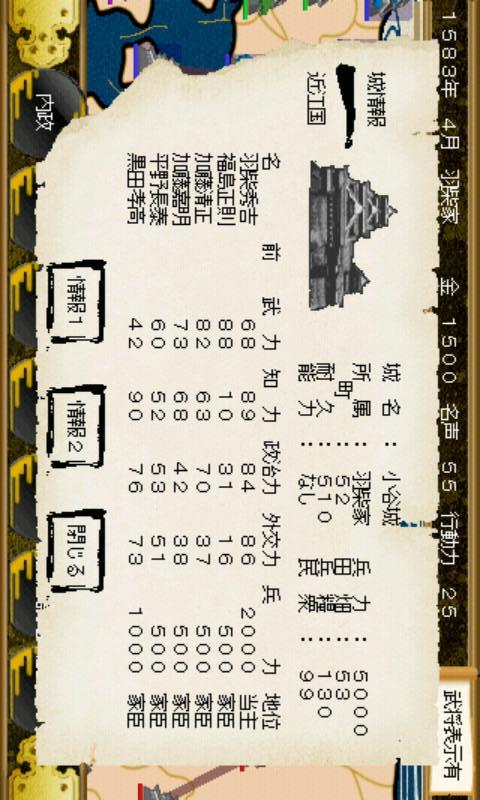 1583年 4月 羽柴家 金 1500 名声 55 行動力 25
武将表示有
城情報
近江国
城名 : 小谷城
所属 : 羽柴家 兵力 : 5000
町 : 52 田畑 : 53
耐久力 : 510 兵糧 : 130
龍 : なし 民衆 : 99
名前 武力 知力 政治力 外交力 兵力 地位
羽柴秀吉 68 89 84 86 2000 当主
福島正則 88 10 31 16 500 家臣
加藤清正 82 63 70 37 500 家臣
加藤嘉明 73 68 42 38 500 家臣
平野長泰 60 52 53 51 500 家臣
黒田孝高 42 90 76 73 1000 家臣
情報1 情報2 閉じる
内政